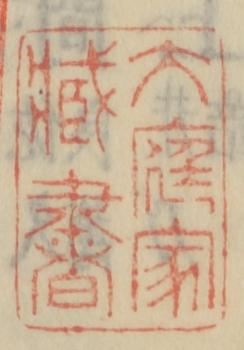 大庭家
藏書